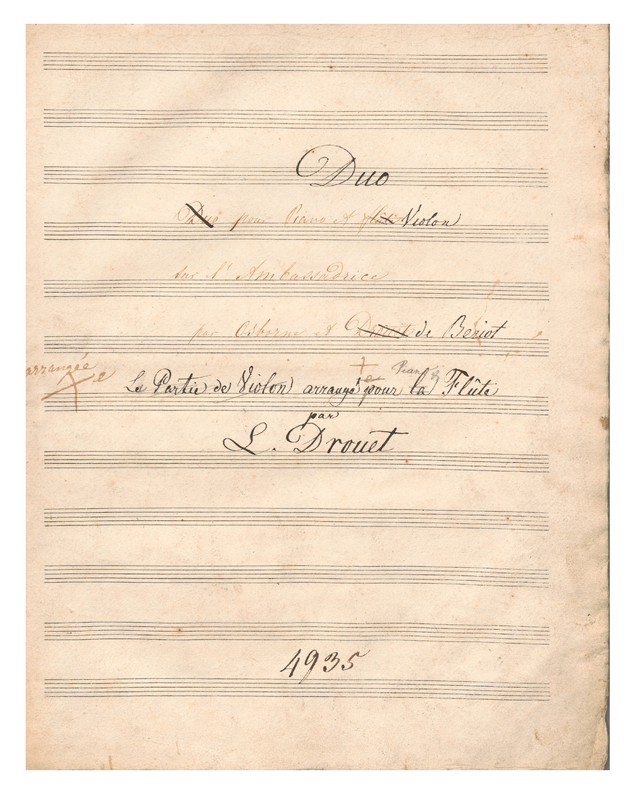 Duo
Duo pour Piano et flûte Violon
sur l'Ambassadrice
par Osborne et Drouet de Beriot
arrangée
e
+
e
La Partie de Violon arrangé pour la Flûte
par
L. Drouet
4935